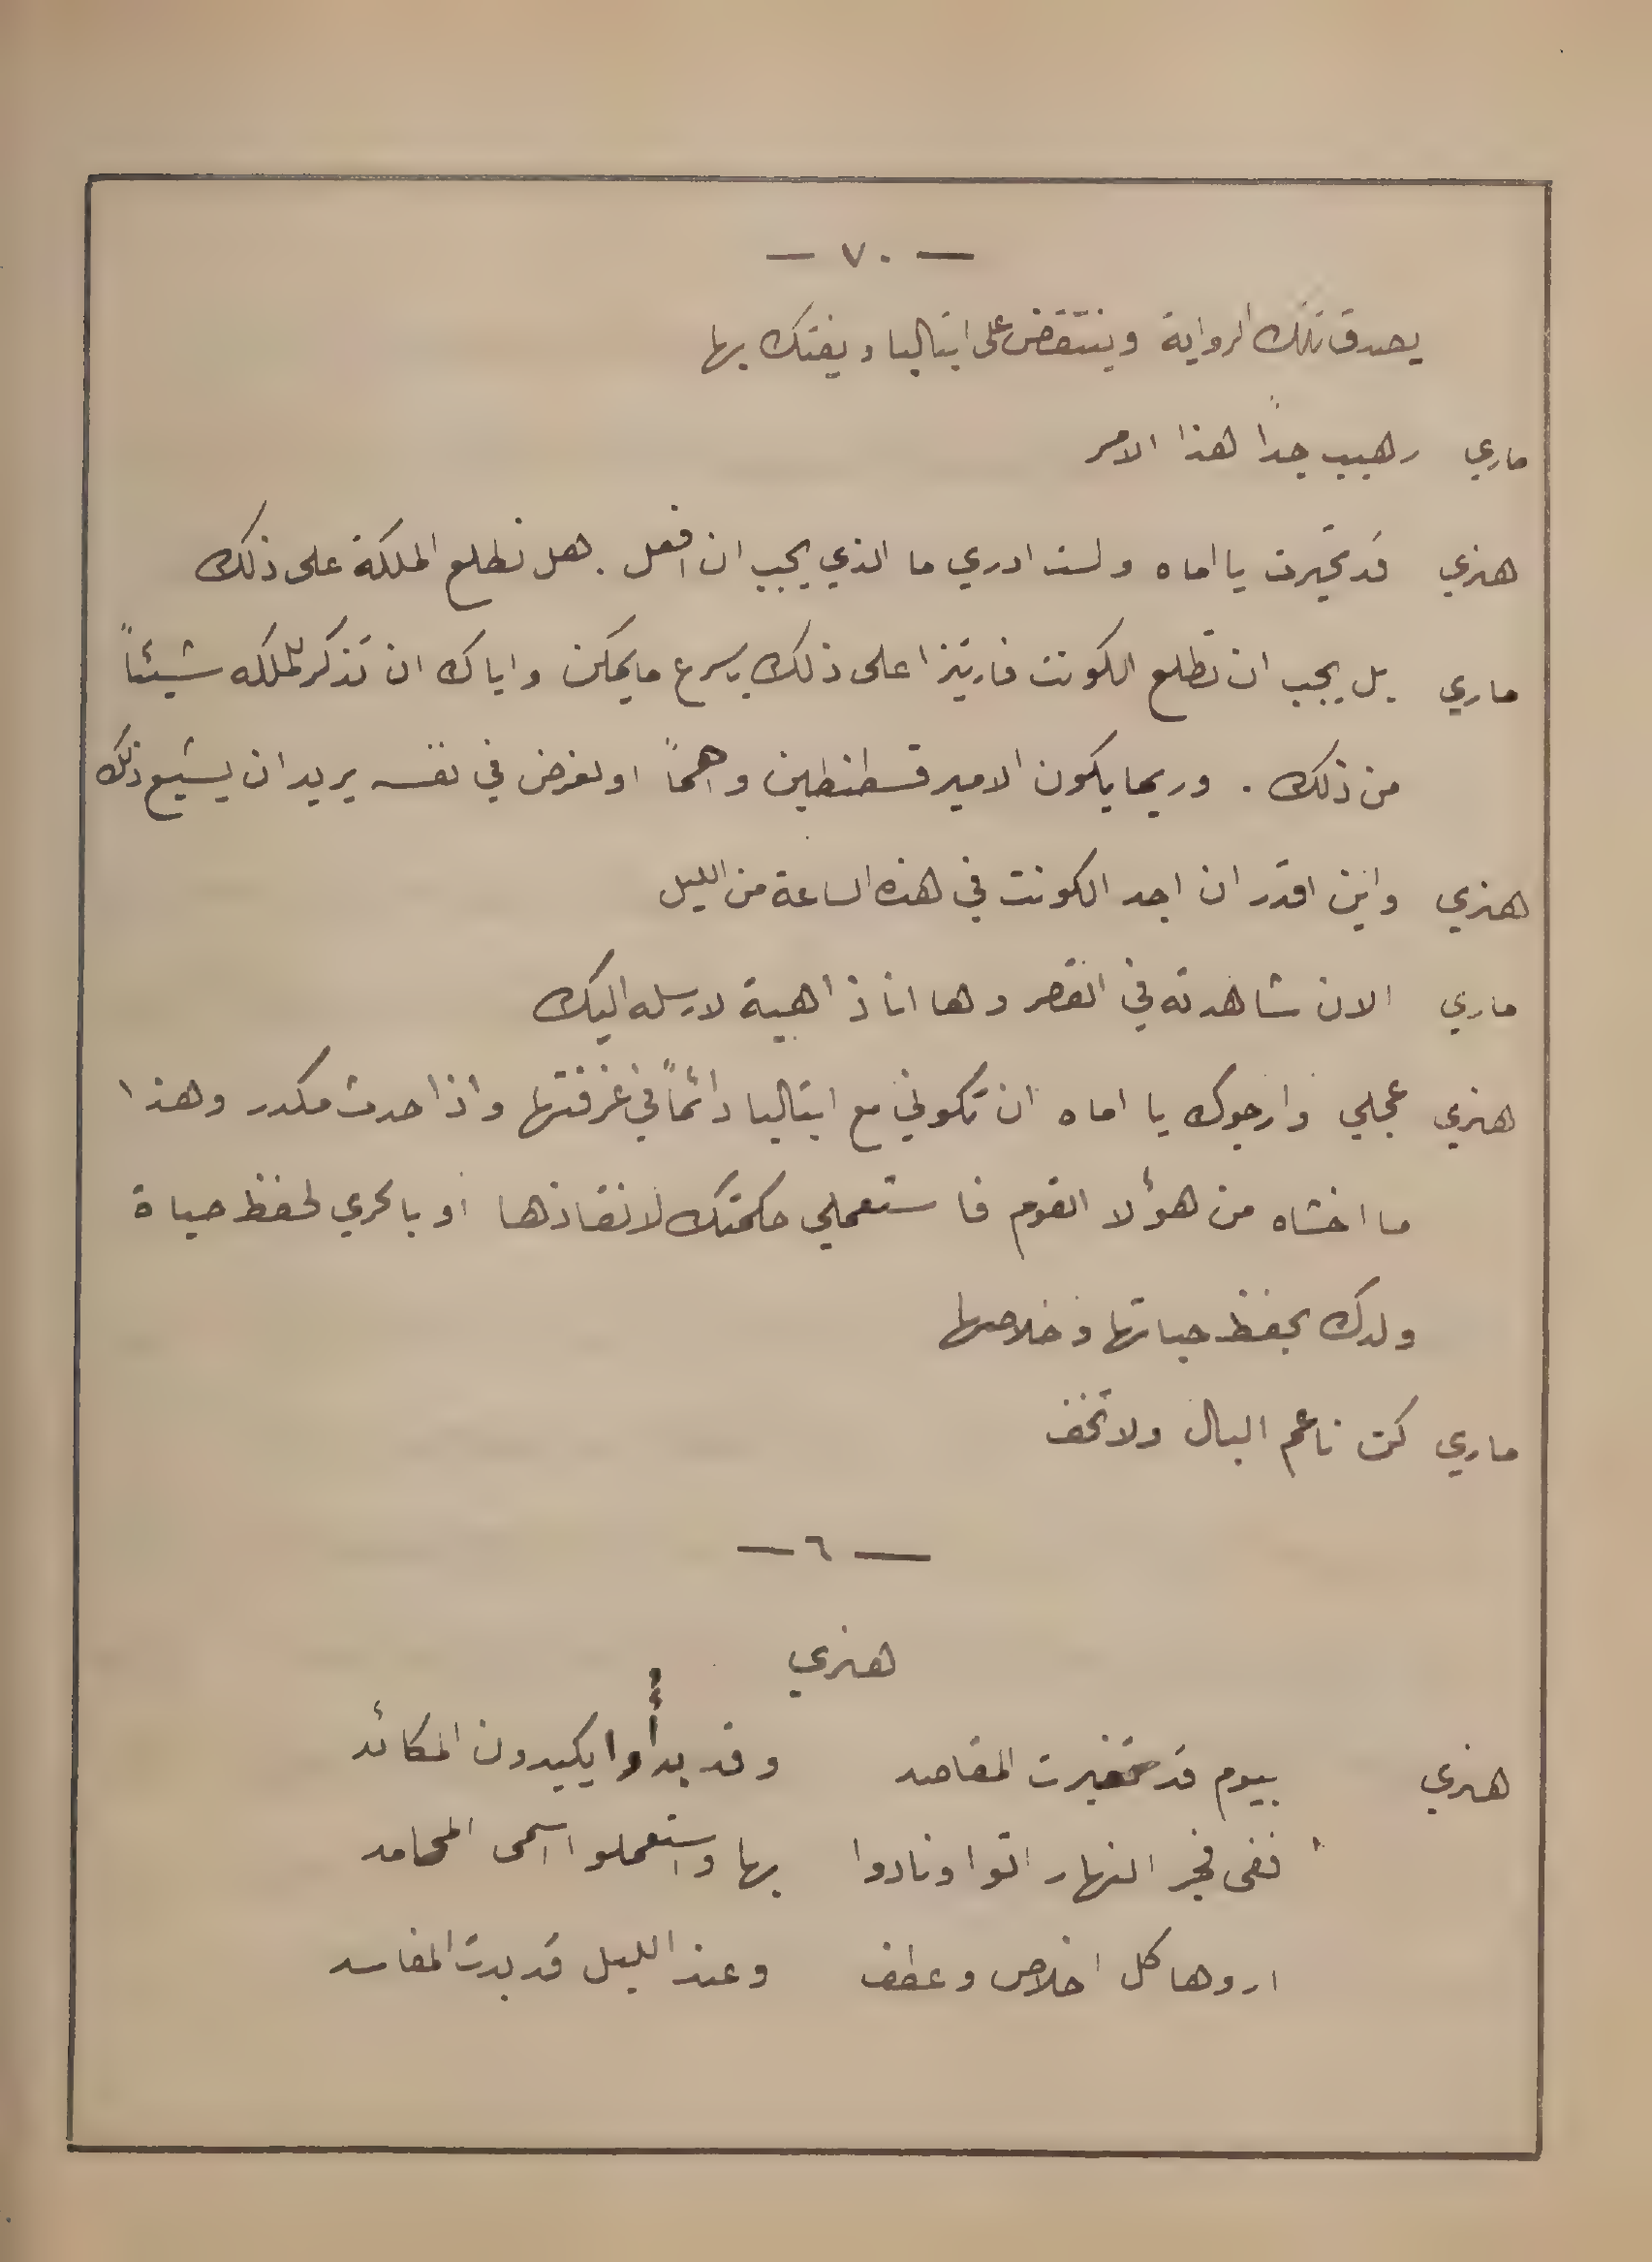 — ٧٠ —
يصدق تلك الرواية وينتقض على ايتاليا ويفتك بها
ماري رهيب جداً هذا الامر
هنري قد تحيرت يا اماه ولست ادري ما الذي يجب ان افعل . هل نطلع الملكة على ذلك
ماري بل يجب ان تطلع الكونت فاريتزا على ذلك باسرع ما يمكن واياك ان تذكر للملكه شيئاً
من ذلك . وربما يكون الامير قسطنطين واهماً او لغرض في نفسه يريد ان يشيع ذلك
هنري واين اقدر ان اجد الكونت في هذه الساعة من الليل
ماري الان شاهدته في القصر وها انا ذاهبة لارسله اليك
هنري عجلي وارجوك يا اماه ان تكوني مع ايتاليا دائماً في غرفتها واذا حدث مكدر وهذا
ما اخشاه من هؤلا القوم فاستعملي حكمتك لانقاذها او بالحري لحفظ حياة
ولدك بحفظ حياتها وخلاصها
ماري كن ناعم البال ولا تخف
— ٦ —
هنري
هنري بيوم قد تغيرت المقاصد وقد بدأوا يكيدون المكائد
ففى فجر النهار اتوا ونادوا بها واستعملوا اسمى المحامد
اروها كل اخلاص وعطف وعند الليل قد بدت المفاسد